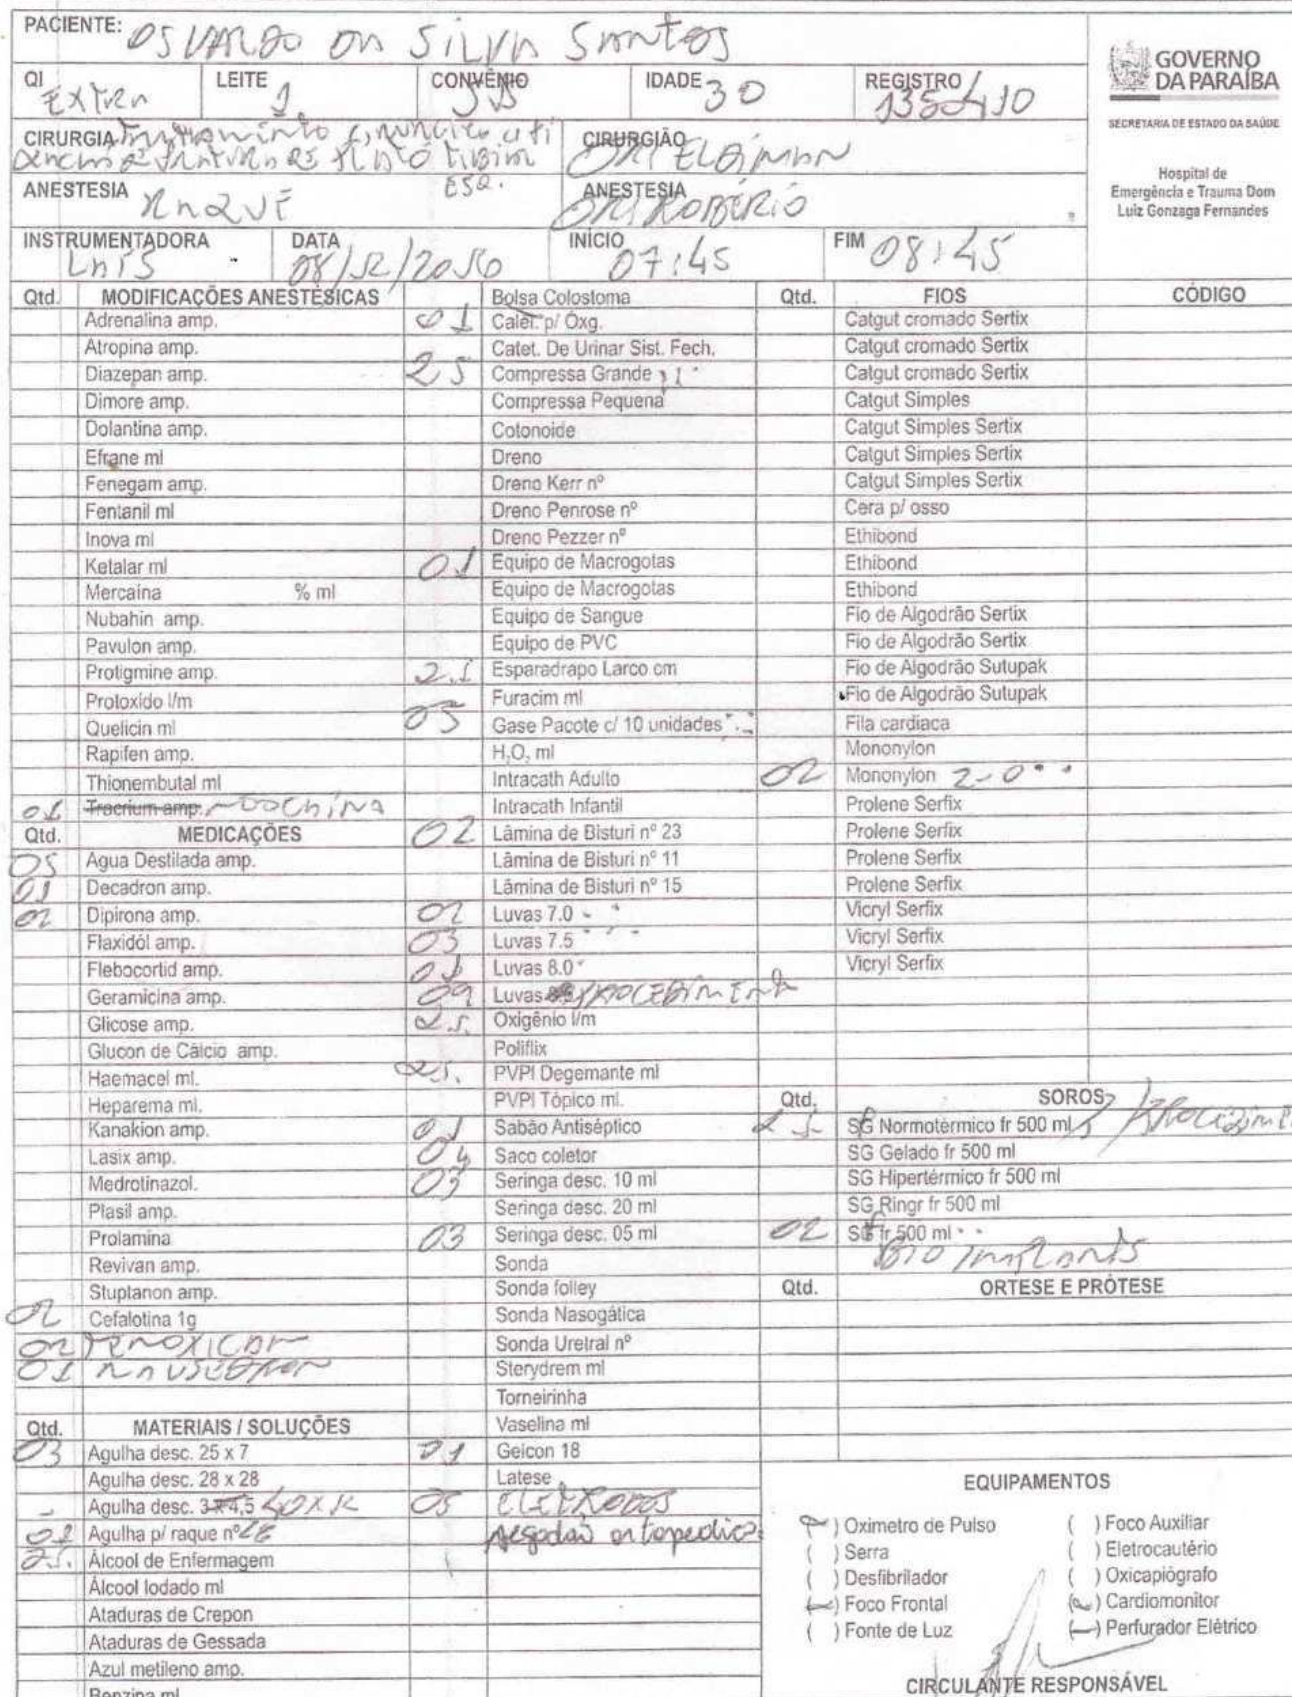 PACIENTE: OSVALDO DA SILVA SANTOS
GOVERNO
DA PARAÍBA
SECRETARIA DE ESTADO DA SAÚDE
Hospital de
Emergência e Trauma Dom
Luiz Gonzaga Fernandes
QI EXTRA LEITE 1 CONVÊNIO IDADE 30 REGISTRO
CIRURGIA CIRURGIÃO
ESQ.
ANESTESIA RAQUE ANESTESIA DR ROGÉRIO
INSTRUMENTADORA LAIS DATA INÍCIO 07:45 FIM 08:45
Qtd. MODIFICAÇÕES ANESTÉSICAS
Adrenalina amp.
Atropina amp.
Diazepan amp.
Dimore amp.
Dolantina amp.
Efrane ml
Fenegam amp.
Fentanil ml
Inova ml
Ketalar ml
Mercaína % ml
Nubahin amp.
Pavulon amp.
Protigmine amp.
Protoxído l/m
Quelicin ml
Rapifen amp.
Thionembutal ml
01 Tracrium amp.
Qtd. MEDICAÇÕES
05 Agua Destilada amp.
01 Decadron amp.
02 Dipirona amp.
Flaxidól amp.
Flebocortid amp.
Geramicina amp.
Glicose amp.
Glucon de Cálcio amp.
Haemacel ml.
Heparema ml.
Kanakion amp.
Lasix amp.
Medrotinazol.
Plasil amp.
Prolamina
Revivan amp.
Stuptanon amp.
02 Cefalotina 1g
02 TENOXICAM
01 NAUSEDRON
Qtd. MATERIAIS / SOLUÇÕES
03 Agulha desc. 25 x 7
Agulha desc. 28 x 28
Agulha desc. 3x4,5 40X12
01 Agulha p/ raque nº
Álcool de Enfermagem
Álcool Iodado ml
Ataduras de Crepon
Ataduras de Gessada
Azul metileno amp.
Benzina ml
Bolsa Colostoma
01 Catet. p/ Oxg.
Catet. De Urinar Sist. Fech.
25 Compressa Grande
Compressa Pequena
Cotonoide
Dreno
Dreno Kerr nº
Dreno Penrose nº
Dreno Pezzer nº
01 Equipo de Macrogotas
Equipo de Macrogotas
Equipo de Sangue
Equipo de PVC
Esparadrapo Larco cm
Furacim ml
05 Gase Pacote c/ 10 unidades
H₂O₂ ml
Intracath Adulto
Intracath Infantil
02 Lâmina de Bisturi nº 23
Lâmina de Bisturi nº 11
Lâmina de Bisturi nº 15
02 Luvas 7.0
03 Luvas 7.5
Luvas 8.0
09 Luvas PROCEDIMENTO
Oxigênio l/m
Poliflix
PVPI Degemante ml
PVPI Tópico ml.
01 Sabão Antiséptico
04 Saco coletor
03 Seringa desc. 10 ml
Seringa desc. 20 ml
03 Seringa desc. 05 ml
Sonda
Sonda folley
Sonda Nasogática
Sonda Uretral nº
Sterydrem ml
Torneirinha
Vaselina ml
01 Gelcon 18
Latese
05 ELETRODOS
Algodão ortopedico
Qtd. FIOS CÓDIGO
Catgut cromado Sertix
Catgut cromado Sertix
Catgut cromado Sertix
Catgut Simples
Catgut Simples Sertix
Catgut Simples Sertix
Catgut Simples Sertix
Cera p/ osso
Ethibond
Ethibond
Ethibond
Fio de Algodrão Sertix
Fio de Algodrão Sertix
Fio de Algodrão Sutupak
Fio de Algodrão Sutupak
Fila cardiaca
Mononylon
02 Mononylon 2-0
Prolene Serfix
Prolene Serfix
Prolene Serfix
Prolene Serfix
Vicryl Serfix
Vicryl Serfix
Vicryl Serfix
Qtd. SOROS
SG Normotérmico fr 500 ml
SG Gelado fr 500 ml
SG Hipertérmico fr 500 ml
SG Ringr fr 500 ml
02 SG fr 500 ml
BIO IMPLANTS
Qtd. ORTESE E PRÓTESE
EQUIPAMENTOS
Oximetro de Pulso
( ) Serra
( ) Desfibrilador
Foco Frontal
( ) Fonte de Luz
( ) Foco Auxiliar
( ) Eletrocautério
( ) Oxicapiógrafo
Cardiomonitor
Perfurador Elétrico
CIRCULANTE RESPONSÁVEL